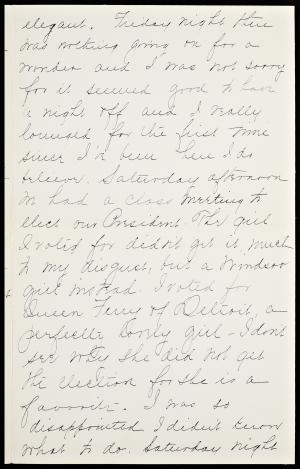 elegant. Friday night there
was nothing going on for a
wonder and I was not sorry
for it seemed good to have
a night off and I really
lounged for the first time
since I've been here I do
believe. Saturday afternoon
we had a class meeting to
elect our President. The girl
I voted for didn't get it, much
to my disgust, but a Windsor
girl instead. I voted for
Queen Ferry of Detroit, a
perfectly lovely girl - I don't
see why she did not get
the election for she is a
favorite. I was so
disappointed I didn't know
what to do. Saturday night